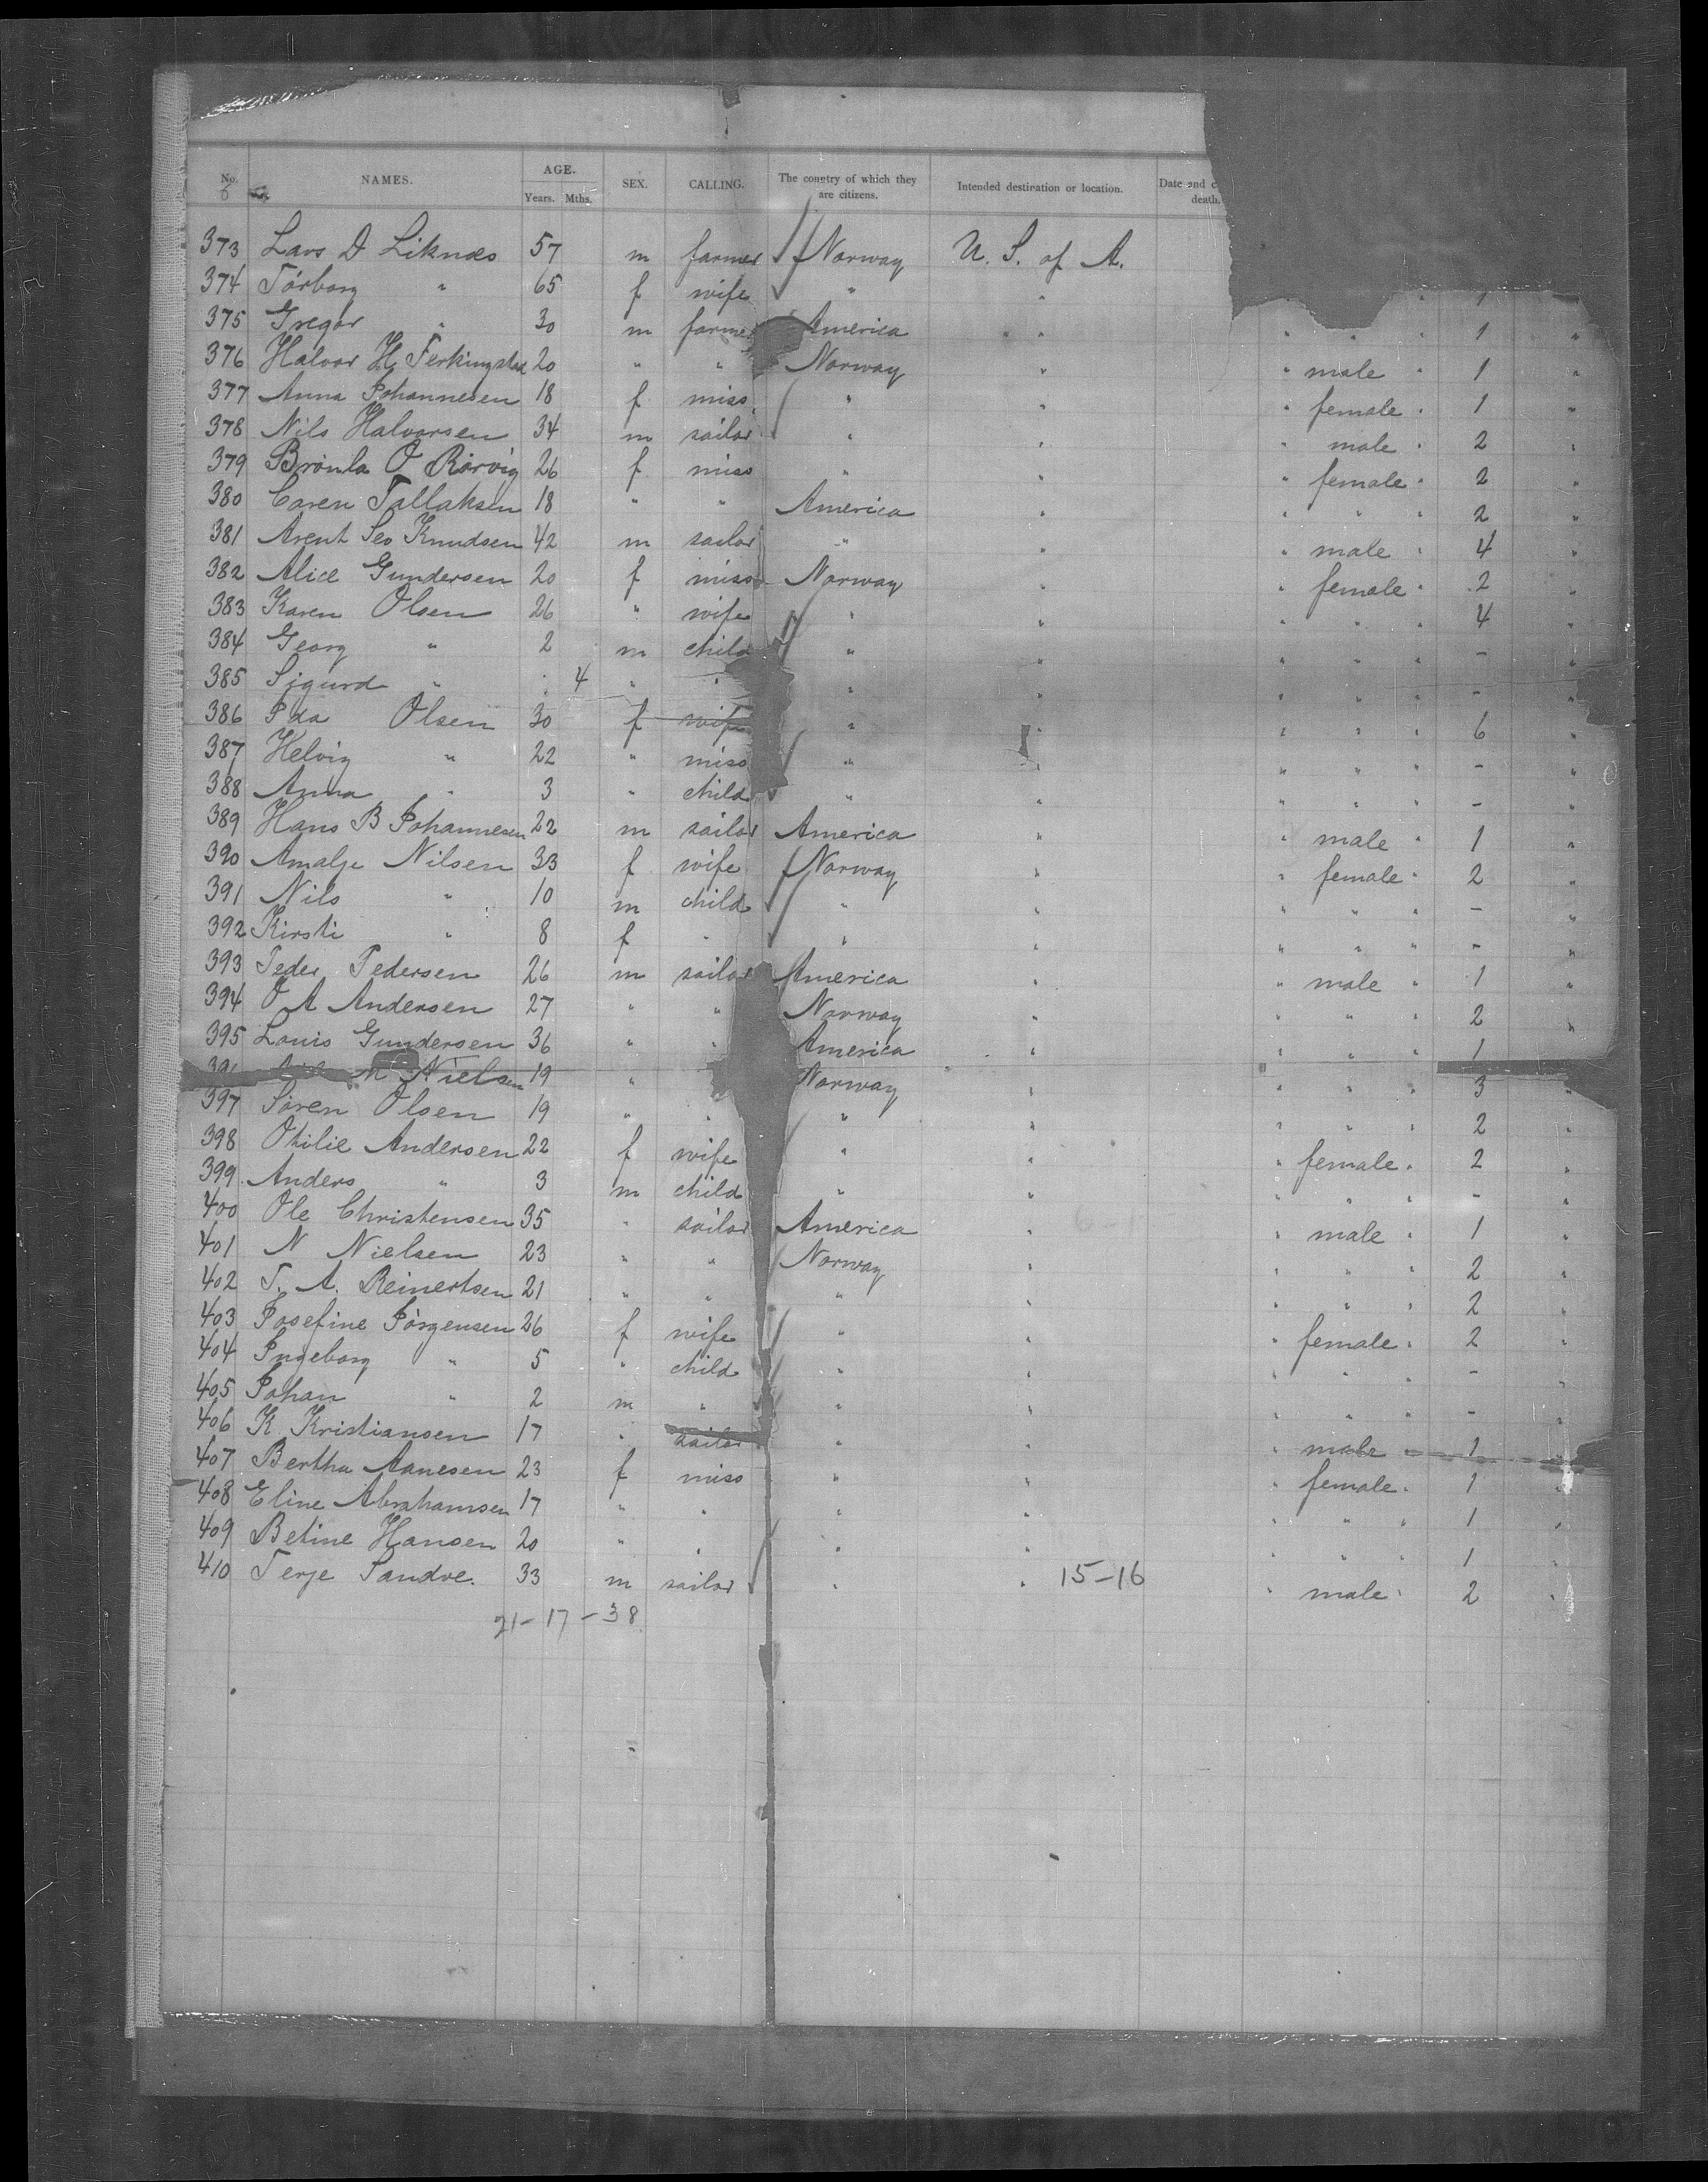 No. NAMES. AGE. Years. Mths. SEX. CALLING. The country of which they are citizens. Intended destination or location. Date and c death.
373 Lars D Liknæs 57 m farmer Norway U. S. of A.
374 Torborg " 65 f wife " " " 1
375 Gregar " 30 m farmer America " " " " " 1 "
376 Halvor H. Ferkingstad 20 " " Norway " " male " 1 "
377 Anna Johannesen 18 f miss " " " female " 1 "
378 Nils Halvorsen 34 m sailor " " male " 2 "
379 O Rörvig 26 f miss " " " female " 2 "
380 Caren Tallaksen 18 " " America " " " " 2 "
381 Arent Knudsen 42 m sailor " " " male " 4 "
382 Alice Gundersen 20 f miss Norway " " female " 2 "
383 Karen Olsen 26 " wife " " " " " 4 "
384 Georg " 2 m child " " " " " - "
385 Sigurd " 4 " " " " " " " - "
386 Ida Olsen 30 f wife " " " " " 6 "
387 Helvig " 22 " miss " " " " " - "
388 Anna " 3 " child " " " " " - "
389 Hans B Johannesen 22 m sailor America " " male " 1 "
390 Amalje Nilsen 33 f wife Norway " " female " 2 "
391 Nils " 10 m child " " " " " - "
392 Kirsti " 8 f " " " " " " - "
393 Peder Pedersen 26 m sailor America " " male " 1 "
394 O A Andersen 27 " " Norway " " " " 2 "
395 Louis Gundersen 36 " " America " " " " 1
M Nielsen 19 " Norway " " " " 3 "
397 Sören Olsen 19 " " " " " " " 2 "
398 Otilie Andersen 22 f wife " " " female " 2 "
399 Anders " 3 m child " " " " " - "
400 Ole Christensen 35 " sailor America " " male " 1 "
401 N Nielsen 23 " " Norway " " " " 2 "
402 T. A. Reinertsen 21 " " " " " " " 2 "
403 Josefine Jörgensen 26 f wife " " " female " 2 "
404 Ingeborg " 5 " child " " " " " - "
405 Johan " 2 m " " " " " " - "
406 K Kristiansen 17 " sailor " " " male " 1 "
407 Bertha Aanesen 23 f miss " " " female " 1 "
408 Eline Abrahamsen 17 " " " " " " " 1 "
409 Betine Hansen 20 " " " " " " " 1 "
410 Terje Sandve. 33 m sailor " " 15-16 " male " 2 "
21-17-38